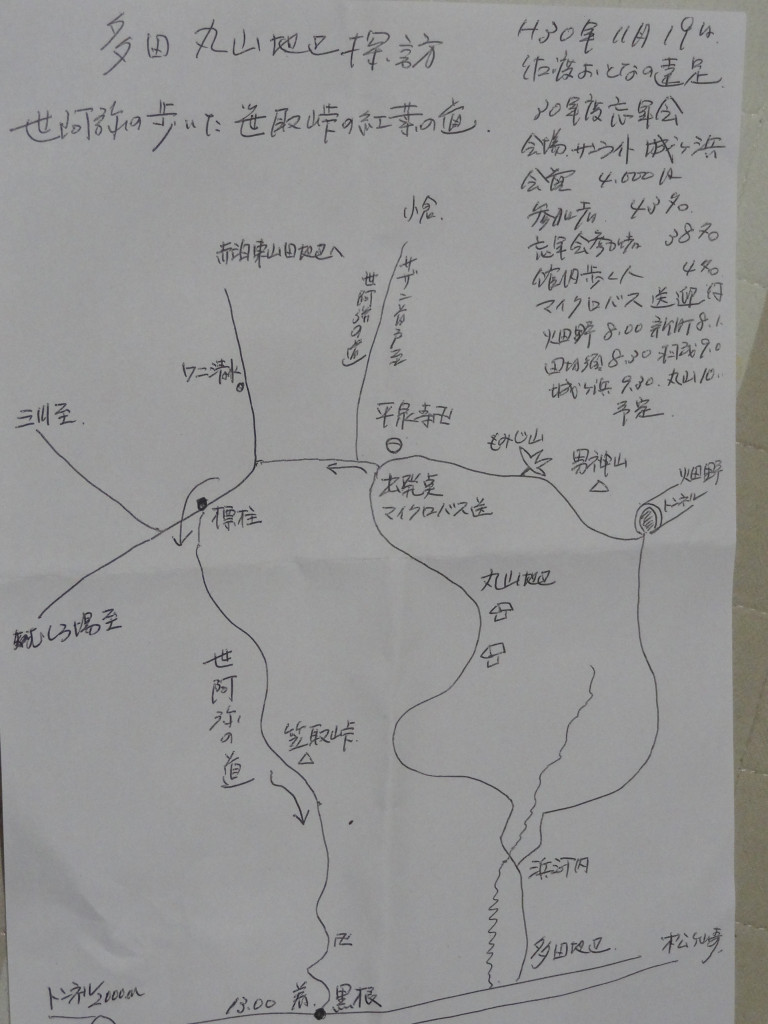 多田 丸山地区探訪
世阿弥の歩いた 笠取峠の紅葉の道.
H30年 11月 19日
佐渡おとなの遠足
30年度忘年会
会場.サンライト 城ヶ浜
会費 4.000円
参加者. 43名.
忘年会参加者 38名
館内歩く人 4名
マイクロバス 送迎付
畑野 8.00 新町 8.1
田切須 8.30 羽茂 9.0
城ヶ浜 9.30. 丸山 10.
予定.
小倉.
赤泊東山田地区へ
世阿弥の道
ワニ清水
三川至.
平泉寺卍
もみじ山
男神山
畑野
トンネル
出発点
マイクロバス送
標柱
しろ場至
丸山地区
世阿弥の道
笠取峠.
浜河内
卍
多田地区.
松ヶ崎
トンネル2000m
13.00 着. 黒根